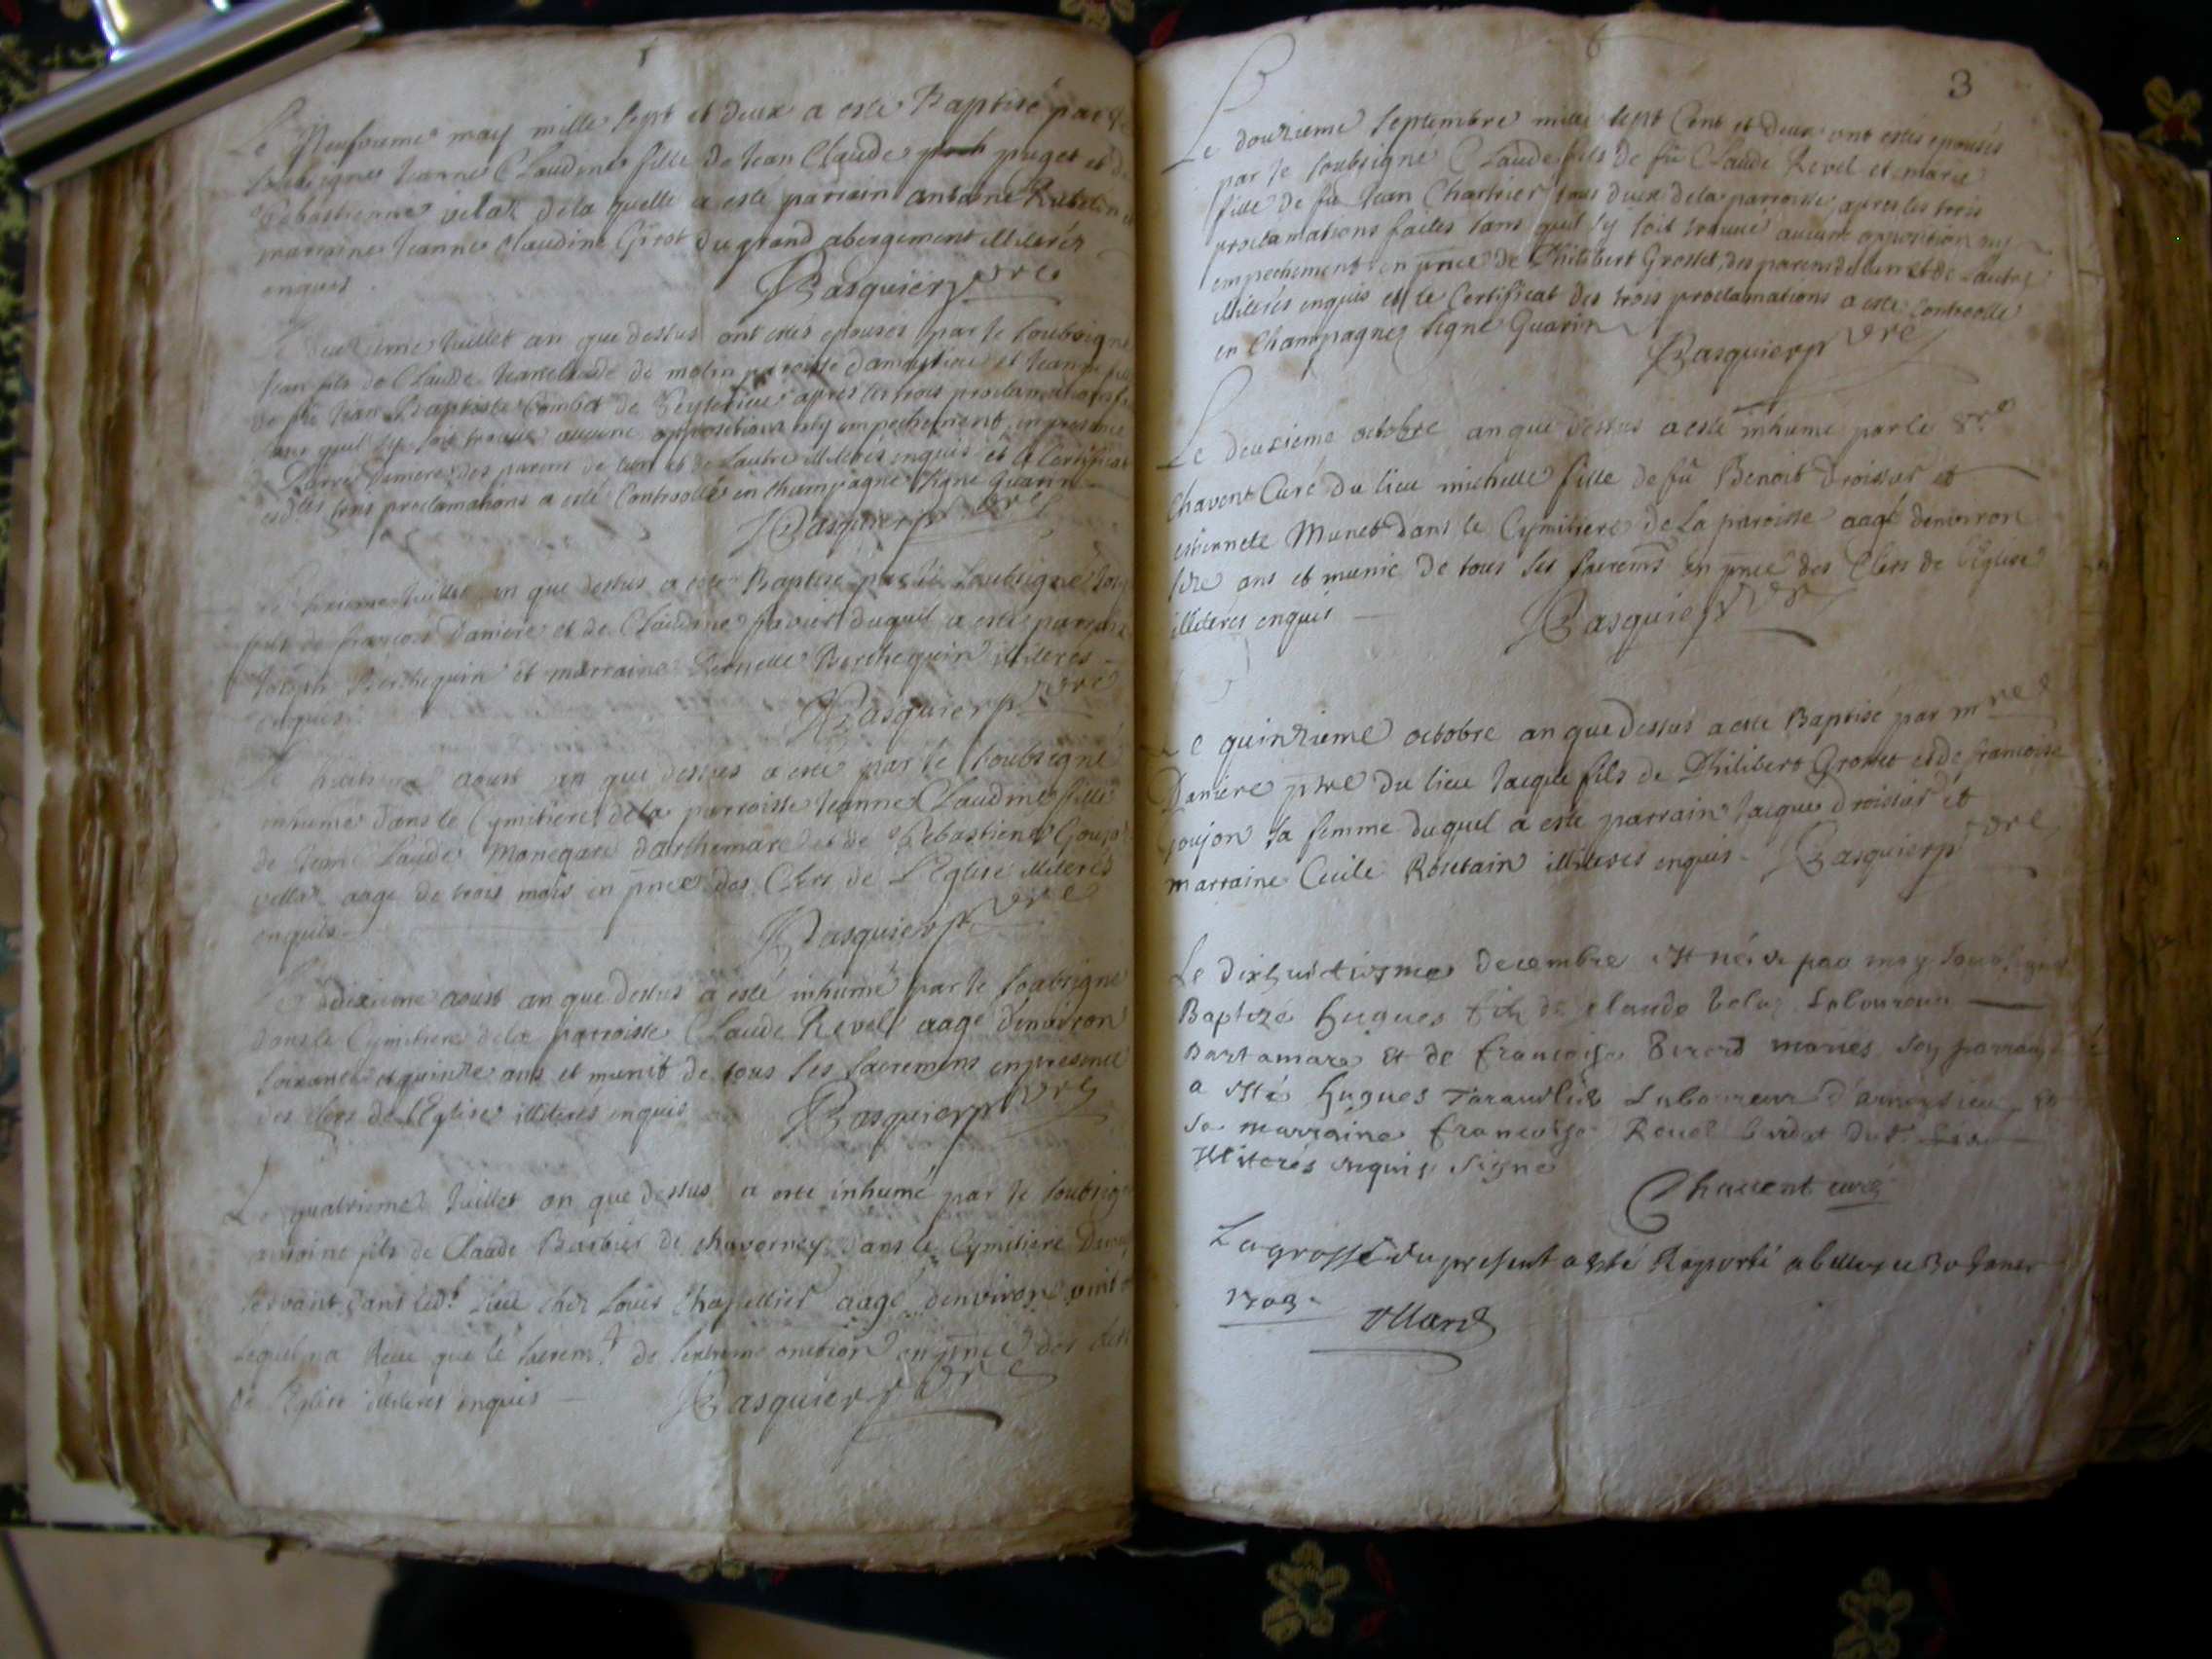 Le Neufieme may mille sept et deux a este Baptisé par le
soubsigne Jeanne Claudine fille de Jean Claude puget et de
Sebastienne velat de la quelle a esté parrain antoine
marraine Jeanne Claudine Grost du grand abergement illiterés
enquis
Basquier pbre
Juillet an que dessus ont estés epousés par le soubsigne
Jean fils de Claude de molin paroisse et Jeanne
de fû Jean Baptiste Combet de apres les trois proclamations
sans quil sy soit trouvé aucune opposition ny empechement en presence
de Daniere des parens de lun et de Lautre illiterés enquis et le Certificat
des trois proclamations a esté Controollé en Champagne signé Guarin
Basquier pbre
Juillet an que dessus a este Baptisé par le soubsigne
fils de francois Daniere et de Claudine favier duquel a esté parrain
Joseph Berthequin et marraine Pernette Berthequin illiteres
enquis
Basquier pbre
Le huitieme aoust an que dessus a esté par le soubsigné
inhumé dans le Cymitiere de la parroisse Jeanne Claudine fille
de Jean Claude Monegard darthemare et de Sebastienne
aage de trois mois en pnce des Clers de L'Eglise illiterés
enquis
Basquier pbre
Le dixieme aoust an que dessus a esté inhumé par le soubsigne
dans le Cymitiere de la parroisse Claude Revel aagé denviron
soixante et quinze ans et munit de tous ses sacremens en presence
des clers de l'Eglise illiterés enquis
Basquier pbre
Le quatrieme Juillet an que dessus a esté inhumé par le soubsigne
antoine fils de Claude Barbier de chaverney dans le Cymitiere
servant dans led.t lieu chez Louis Chapellier aagé denviron vint
lequel na Receu que le sacrem.t de lextreme onction en pnce des clers
de l'Eglise illiterés enquis
Basquier pbre
3
Le douzieme septembre mille sept Cent et deux ont estés epousés
par le soubsigné Claude fils de fû Claude Revel et marie
fille de fû Jean Charlier tous deux de la parroisse, apres les trois
proclamations faites sans quil sy soit trouvé aucune opposition ny
empechement en pnce de Philibert Grosset, des parens de lun et de Lautre
illiterés enquis et le Certificat des trois proclamations a esté Controollé
en Champagne signé Guarin
Basquier pbre
Le deuxieme octobre an que dessus a esté inhumé par le Sr
Chavent Curé du lieu michelle fille de fû Benoit Droissar et
estiennete Munet dans le Cymitiere de La paroisse aagé denviron
seze ans et munie de tous ses sacremts en pnce des Clers de l'Eglise
illiteres enquis
Basquier pbre
Le quinzieme octobre an que dessus a este Baptisé par mre
Daniere ptre du lieu Jacque fils de Philibert Grosset et de francoise
Goujon sa femme duquel a esté parrain Jacque Droissar et
marraine Cecile Rosetain illiteres enquis - Basquier pbre
Le dixhuictiesme decembre est né et par moy soubsigné
Baptizé hugues filz de claude velaz Laboureur
Dartamare Et de francoise Berard mariés son parrain
a esté hugues Laboureur
sa marraine francoise Revel du.t lieu
Illiterés enquis signé
Chavent curé
La grosse du present a esté Raporté a belley ce 30 Janer
1703.